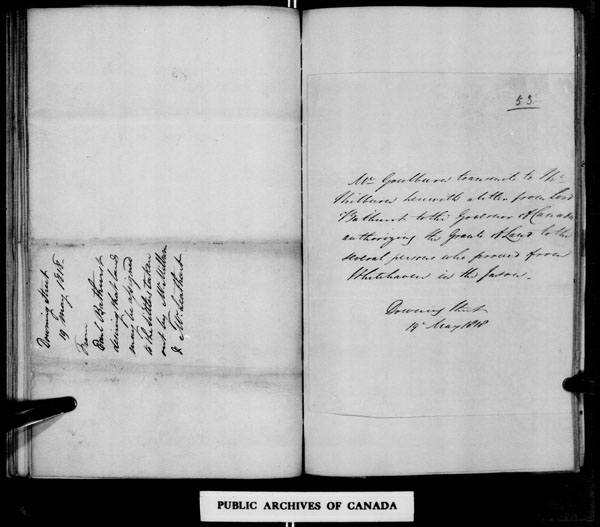 Downing Street
19 May 1818.
From
Earl Bathurst
desiring that land
may be assigned
to the settlers taken
out by Mr Milburn
&
53
Mr Goulburn transmits to Mr
Milburn herewith a letter from Lord
Bathurst to the Governor of Canada
authorizing the Grants of Land to the
several persons who proceed from
Whitehaven in the Jason.
Downing Street
19 May 1818
PUBLIC ARCHIVES OF CANADA